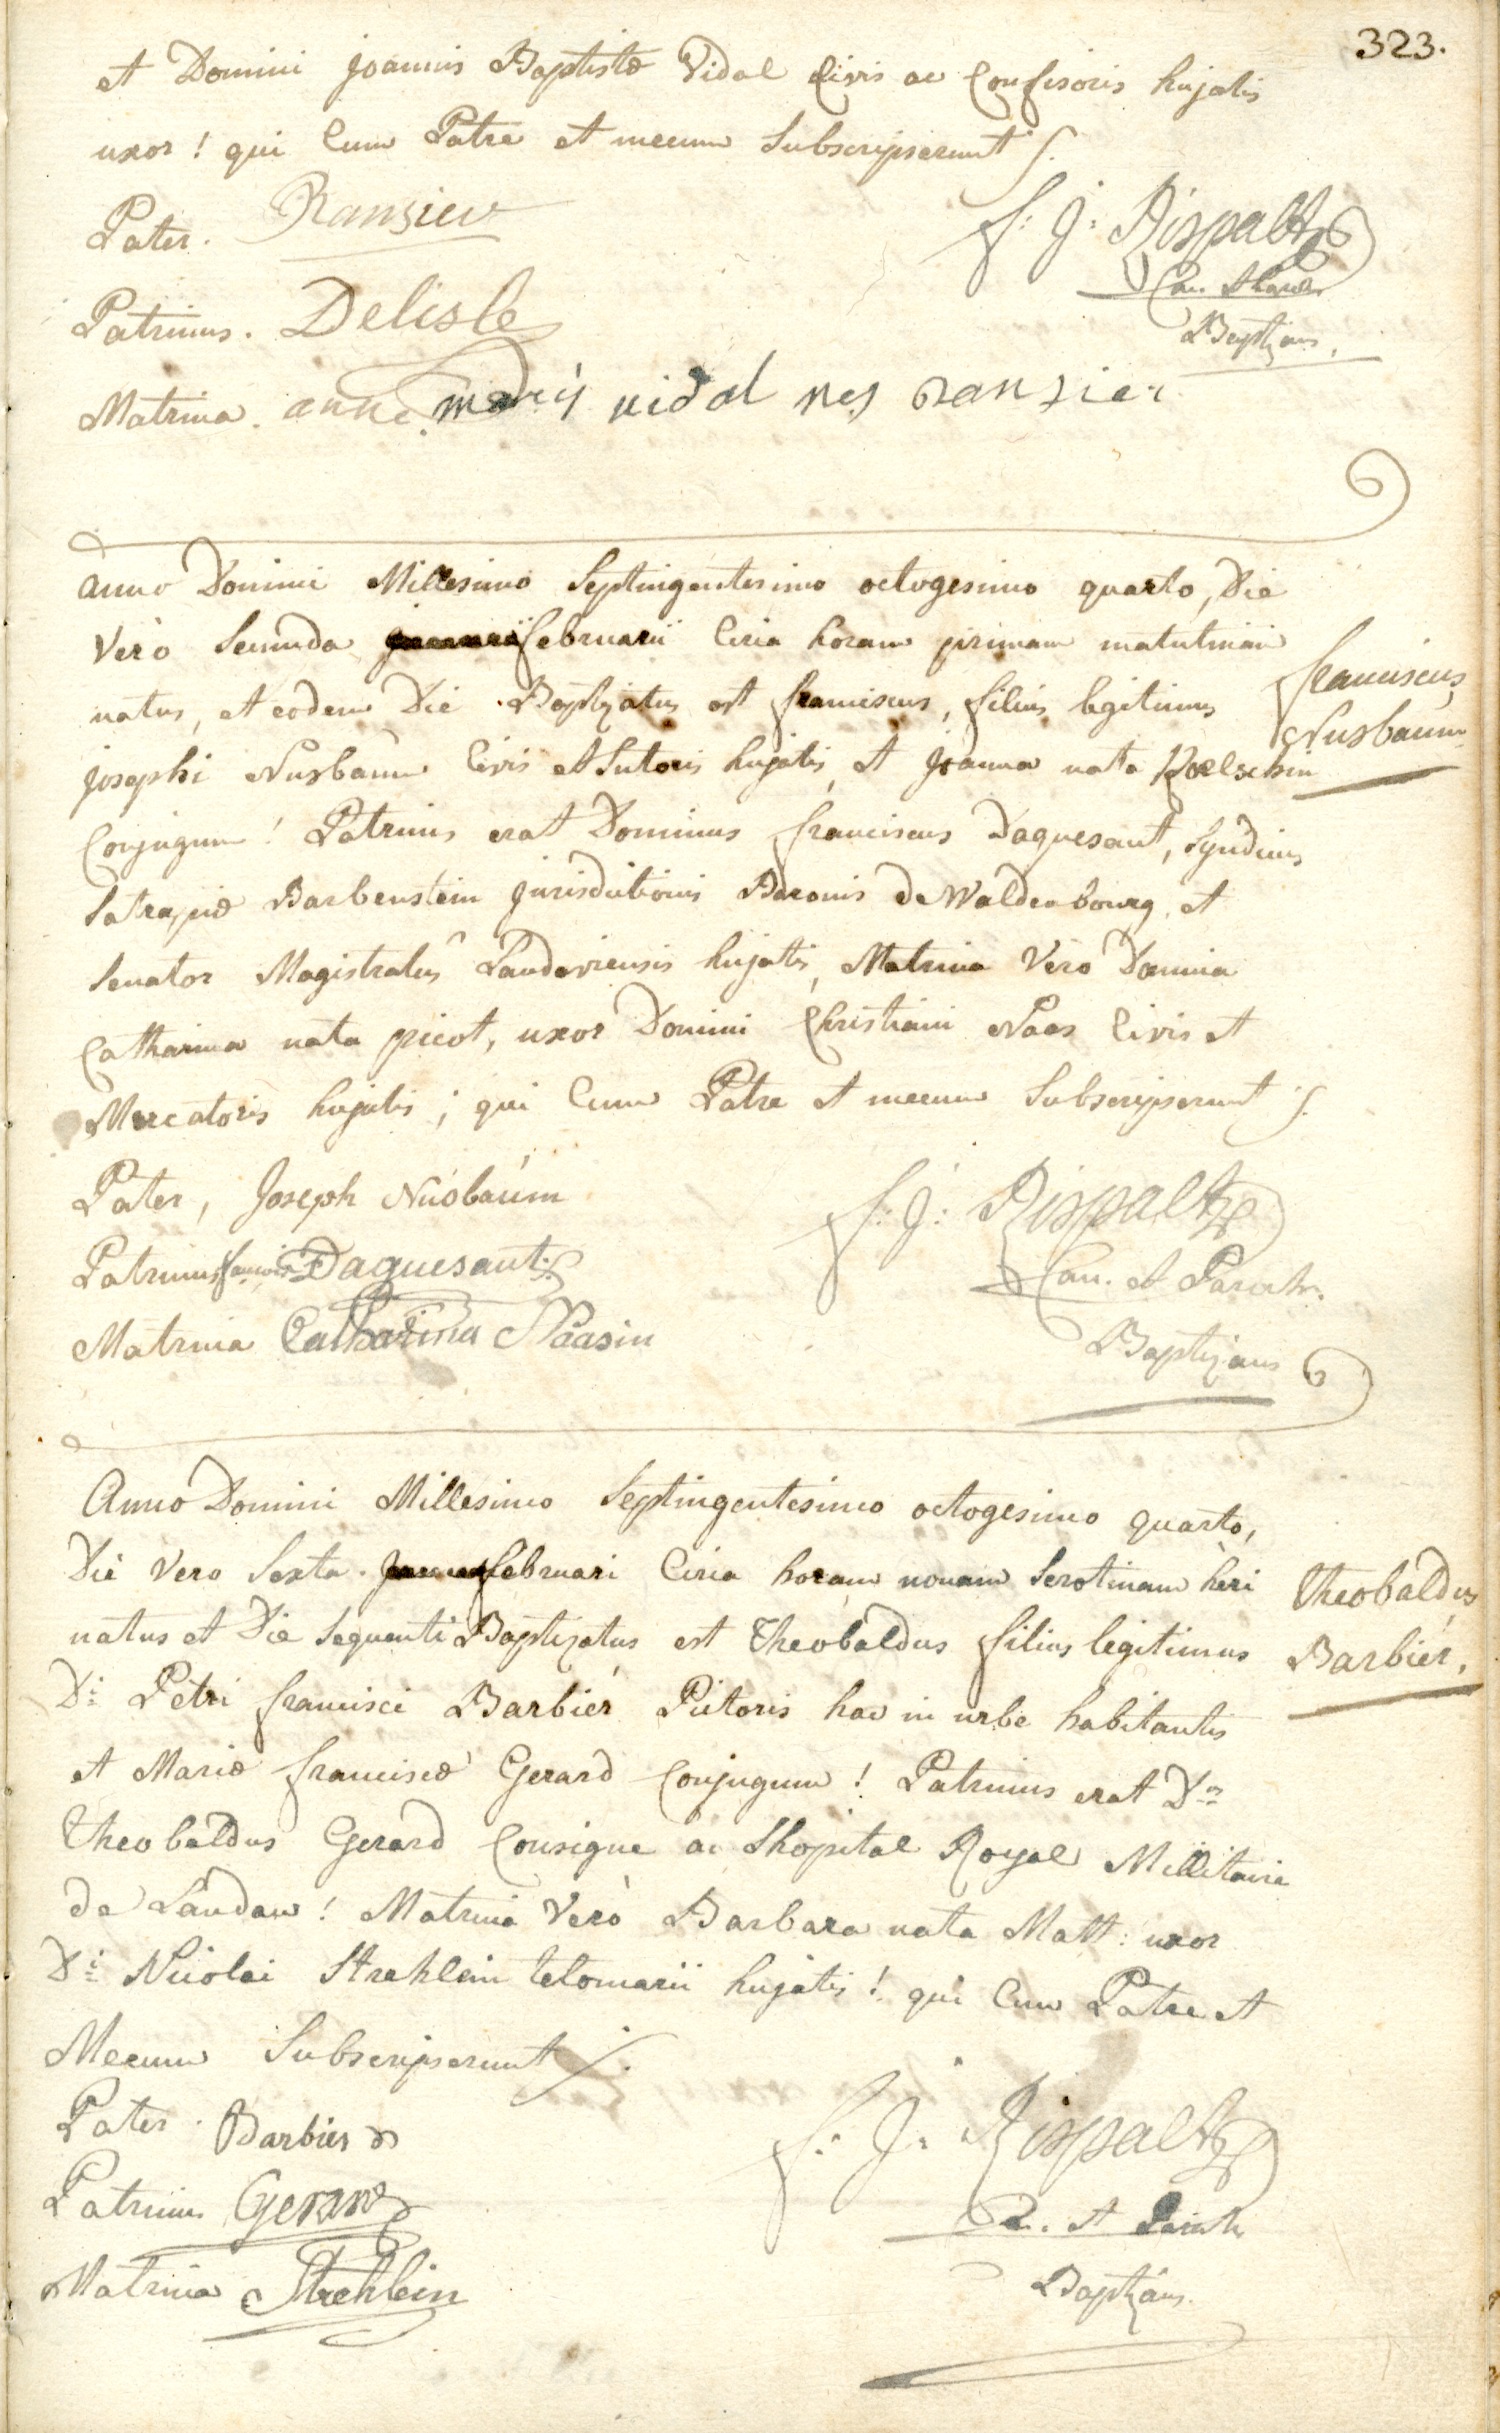 323.
et Domini Joannis Baptistæ Vidal Civis ac Confisoris hujatis
uxor! qui Cum Patre et mecum Subscripserunt
Pater. Ranzier
F: J: Rispalt
Patrinus. Delisle
Can. et Paroch.
Baptizans.
Matrina. anne mariÿ vidal nes ranzier
Anno Domini Millesimo Septingentesimo octogesimo quarto, Die
Vero Secunda februarii Circa horam primam matutinam
natus, et eodem Die Baptizatus est franciscus, filius legitimus
franciscus
Nusbaum
Josephi Nusbaum Civis et Sutoris hujatis, et Joanna nata Koelschin
Conjugum! Patrinus erat Dominus franciscus Daquesant, Syndicus
Satrapiæ Barbenstein Jurisdictionis Baronis de Waldenbourg, et
Senator Magistratus Landaviensis hujatis, Matrina Vero Domina
Catharina nata picot, uxor Domini Christiani Naas Civis et
Mercatoris hujatis; qui Cum Patre et mecum Subscripserunt
Pater, Joseph Nusbaum
F: J: Rispalt
Patrinus françois Daquesant
Can. et Paroch.
Matrina Catharina Naasin
Baptizans
Anno Domini Millesimo Septingentesimo octogesimo quarto,
Die Vero Sexta februari Circa horam nonam Serotinam heri
Theobaldus
natus et Die Sequenti Baptizatus est Theobaldus filius legitimus
Barbier.
Di: Petri francisci Barbier Pictoris hac in urbe habitantis
et Mariæ franciscæ Gerard Conjugum! Patrinus erat Dns
Theobaldus Gerard Consigne a Lhopital Royal Millitaire
de Landau! Matrina Vero Barbara nata Matt: uxor
Di: Nicolai Strehlein telonarii hujatis! qui Cum Patre et
Mecum Subscripserunt
Pater. Barbier
F: J: Rispalt
Patrinus Gerard
C. et Paroch
Matrina Strehlein
Baptizans.